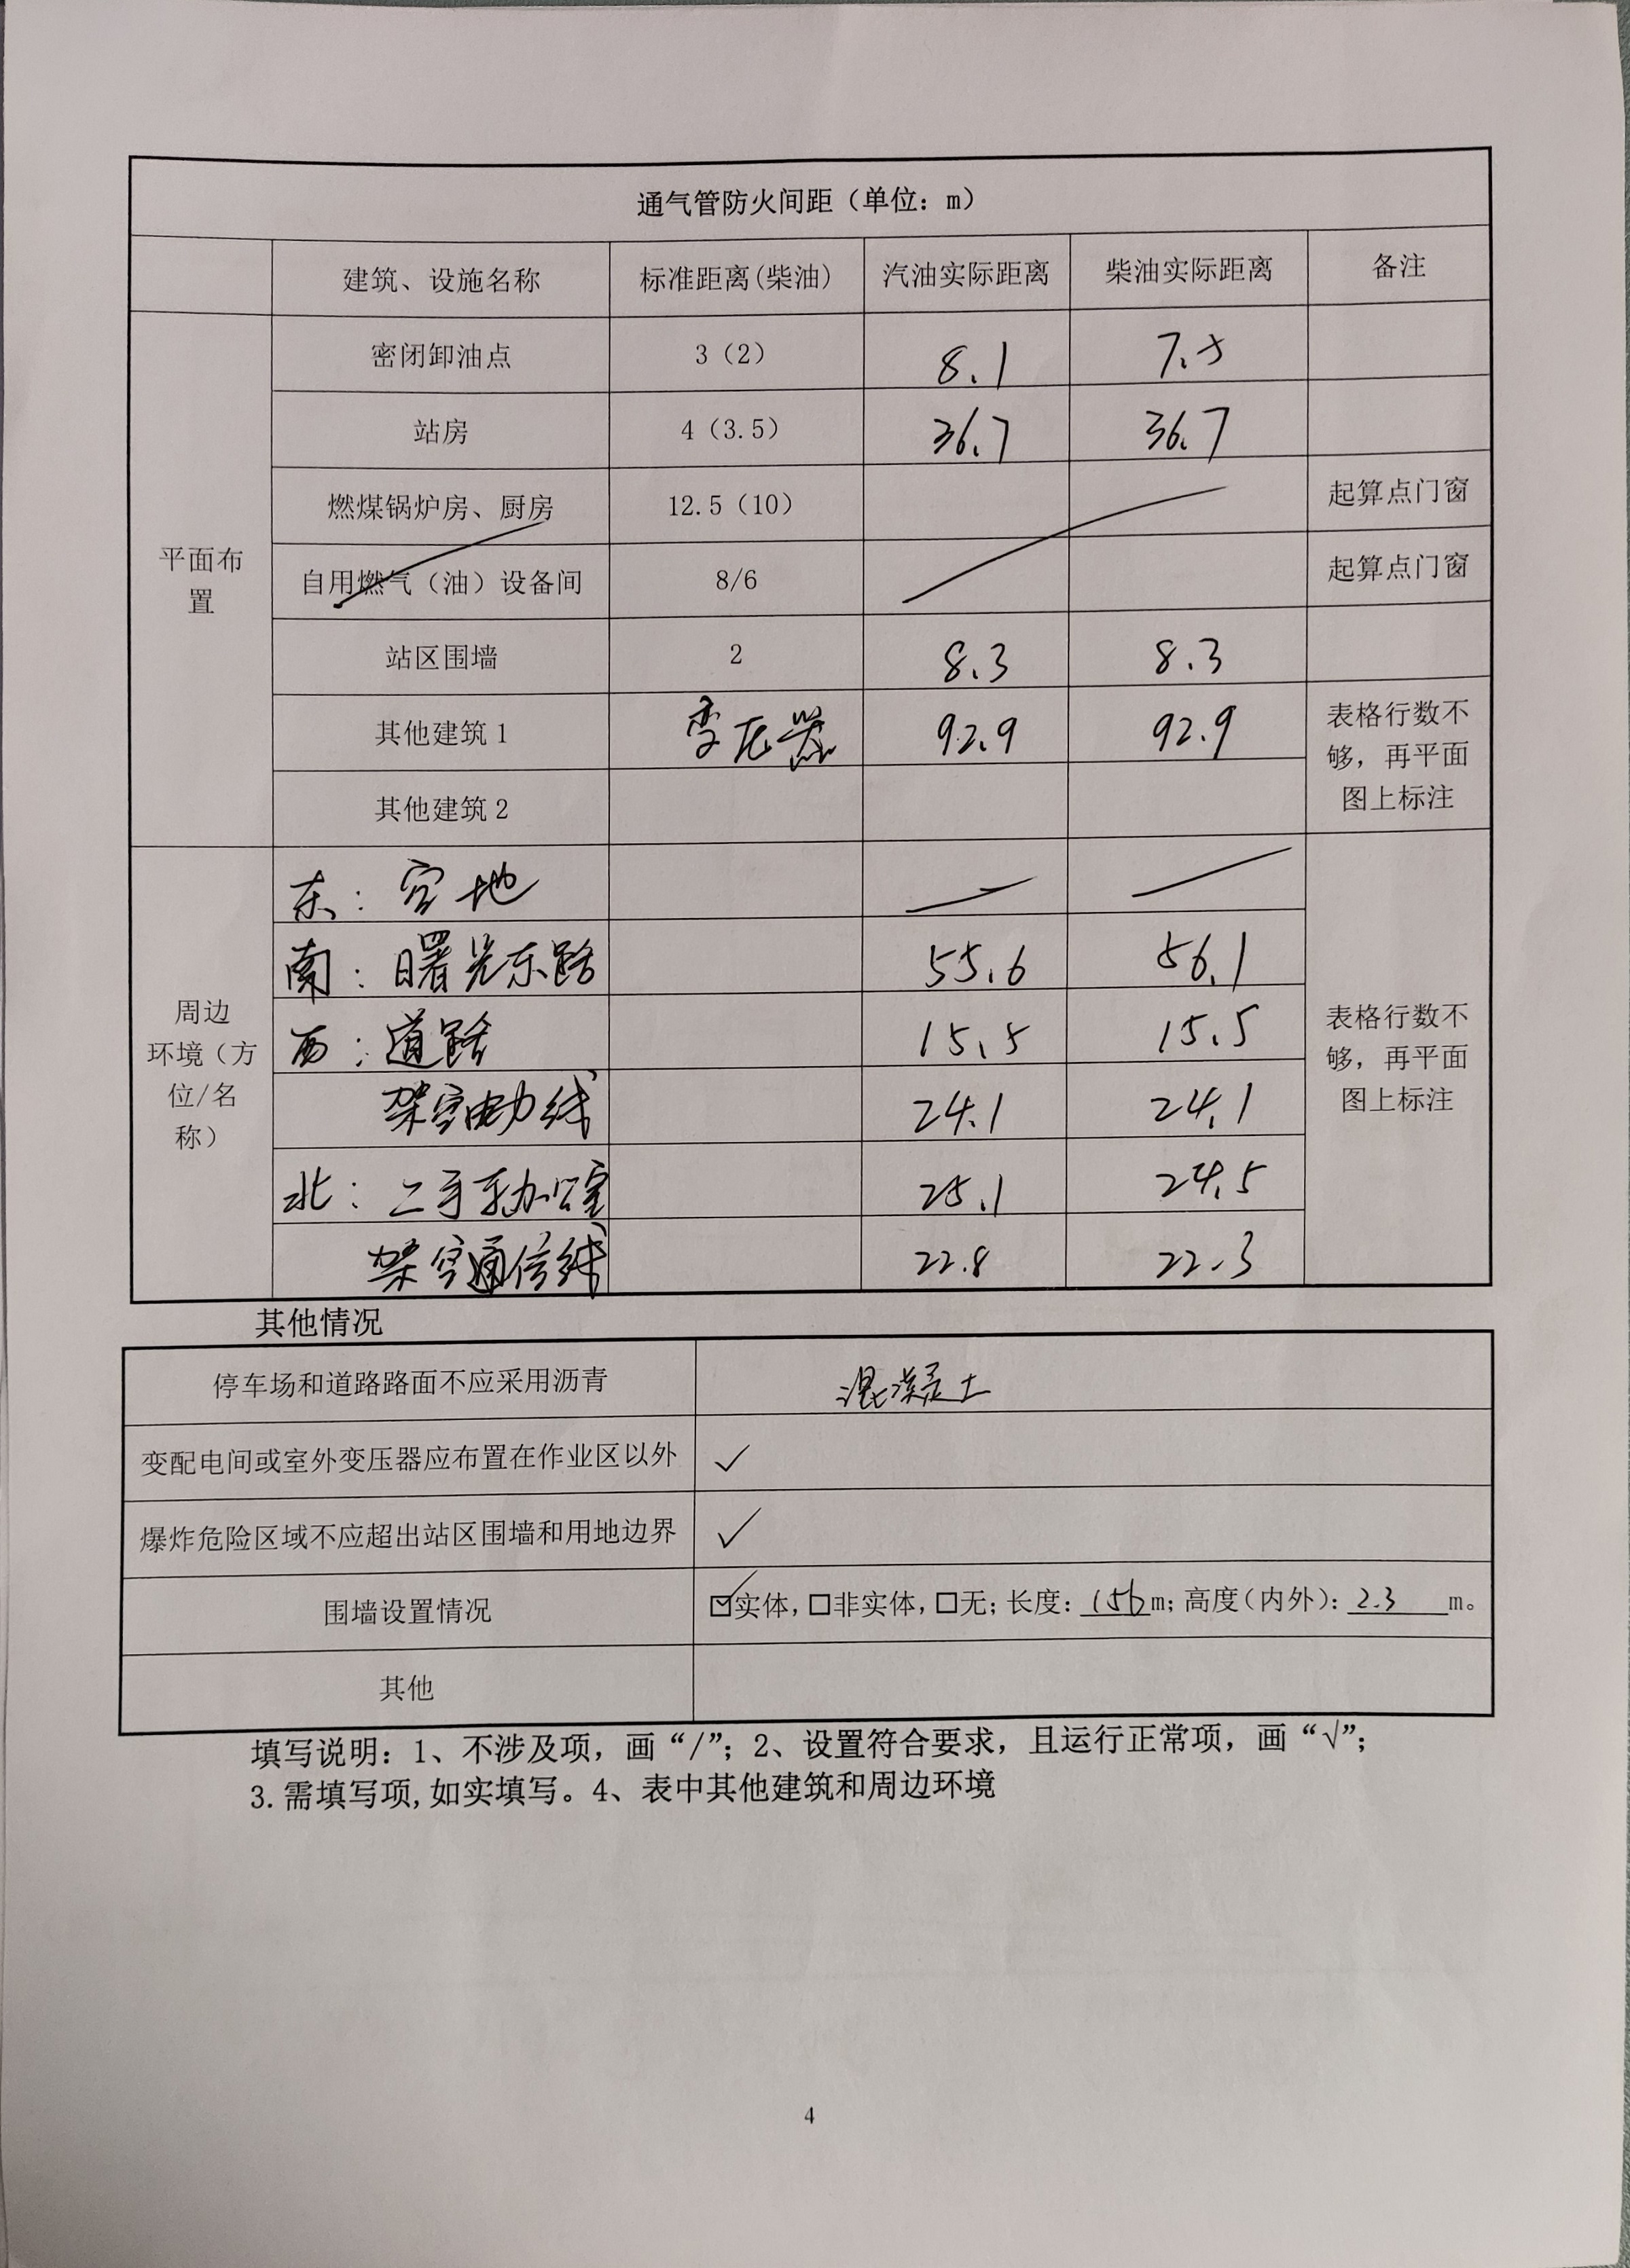 通气管防火间距（单位：m）
建筑、设施名称 标准距离(柴油) 汽油实际距离 柴油实际距离 备注
平面布置
密闭卸油点 3（2） 8.1 7.5
站房 4（3.5） 36.7 36.7
燃煤锅炉房、厨房 12.5（10） 起算点门窗
自用燃气（油）设备间 8/6 / 起算点门窗
站区围墙 2 8.3 8.3
其他建筑 1 变压器 92.9 92.9 表格行数不够，再平面图上标注
其他建筑 2
周边环境（方位/名称）
东：空地 / /
南：曙光东路 55.6 56.1
西：道路 15.5 15.5 表格行数不够，再平面图上标注
架空电力线 24.1 24.1
北：二手车办公室 25.1 24.5
架空通信线 22.8 22.3
其他情况
停车场和道路路面不应采用沥青 混凝土
变配电间或室外变压器应布置在作业区以外 ✓
爆炸危险区域不应超出站区围墙和用地边界 ✓
围墙设置情况 ☑实体，☐非实体，☐无；长度：156m；高度（内外）：2.3m。
其他
填写说明：1、不涉及项，画“/”；2、设置符合要求，且运行正常项，画“√”；
3.需填写项,如实填写。4、表中其他建筑和周边环境
4